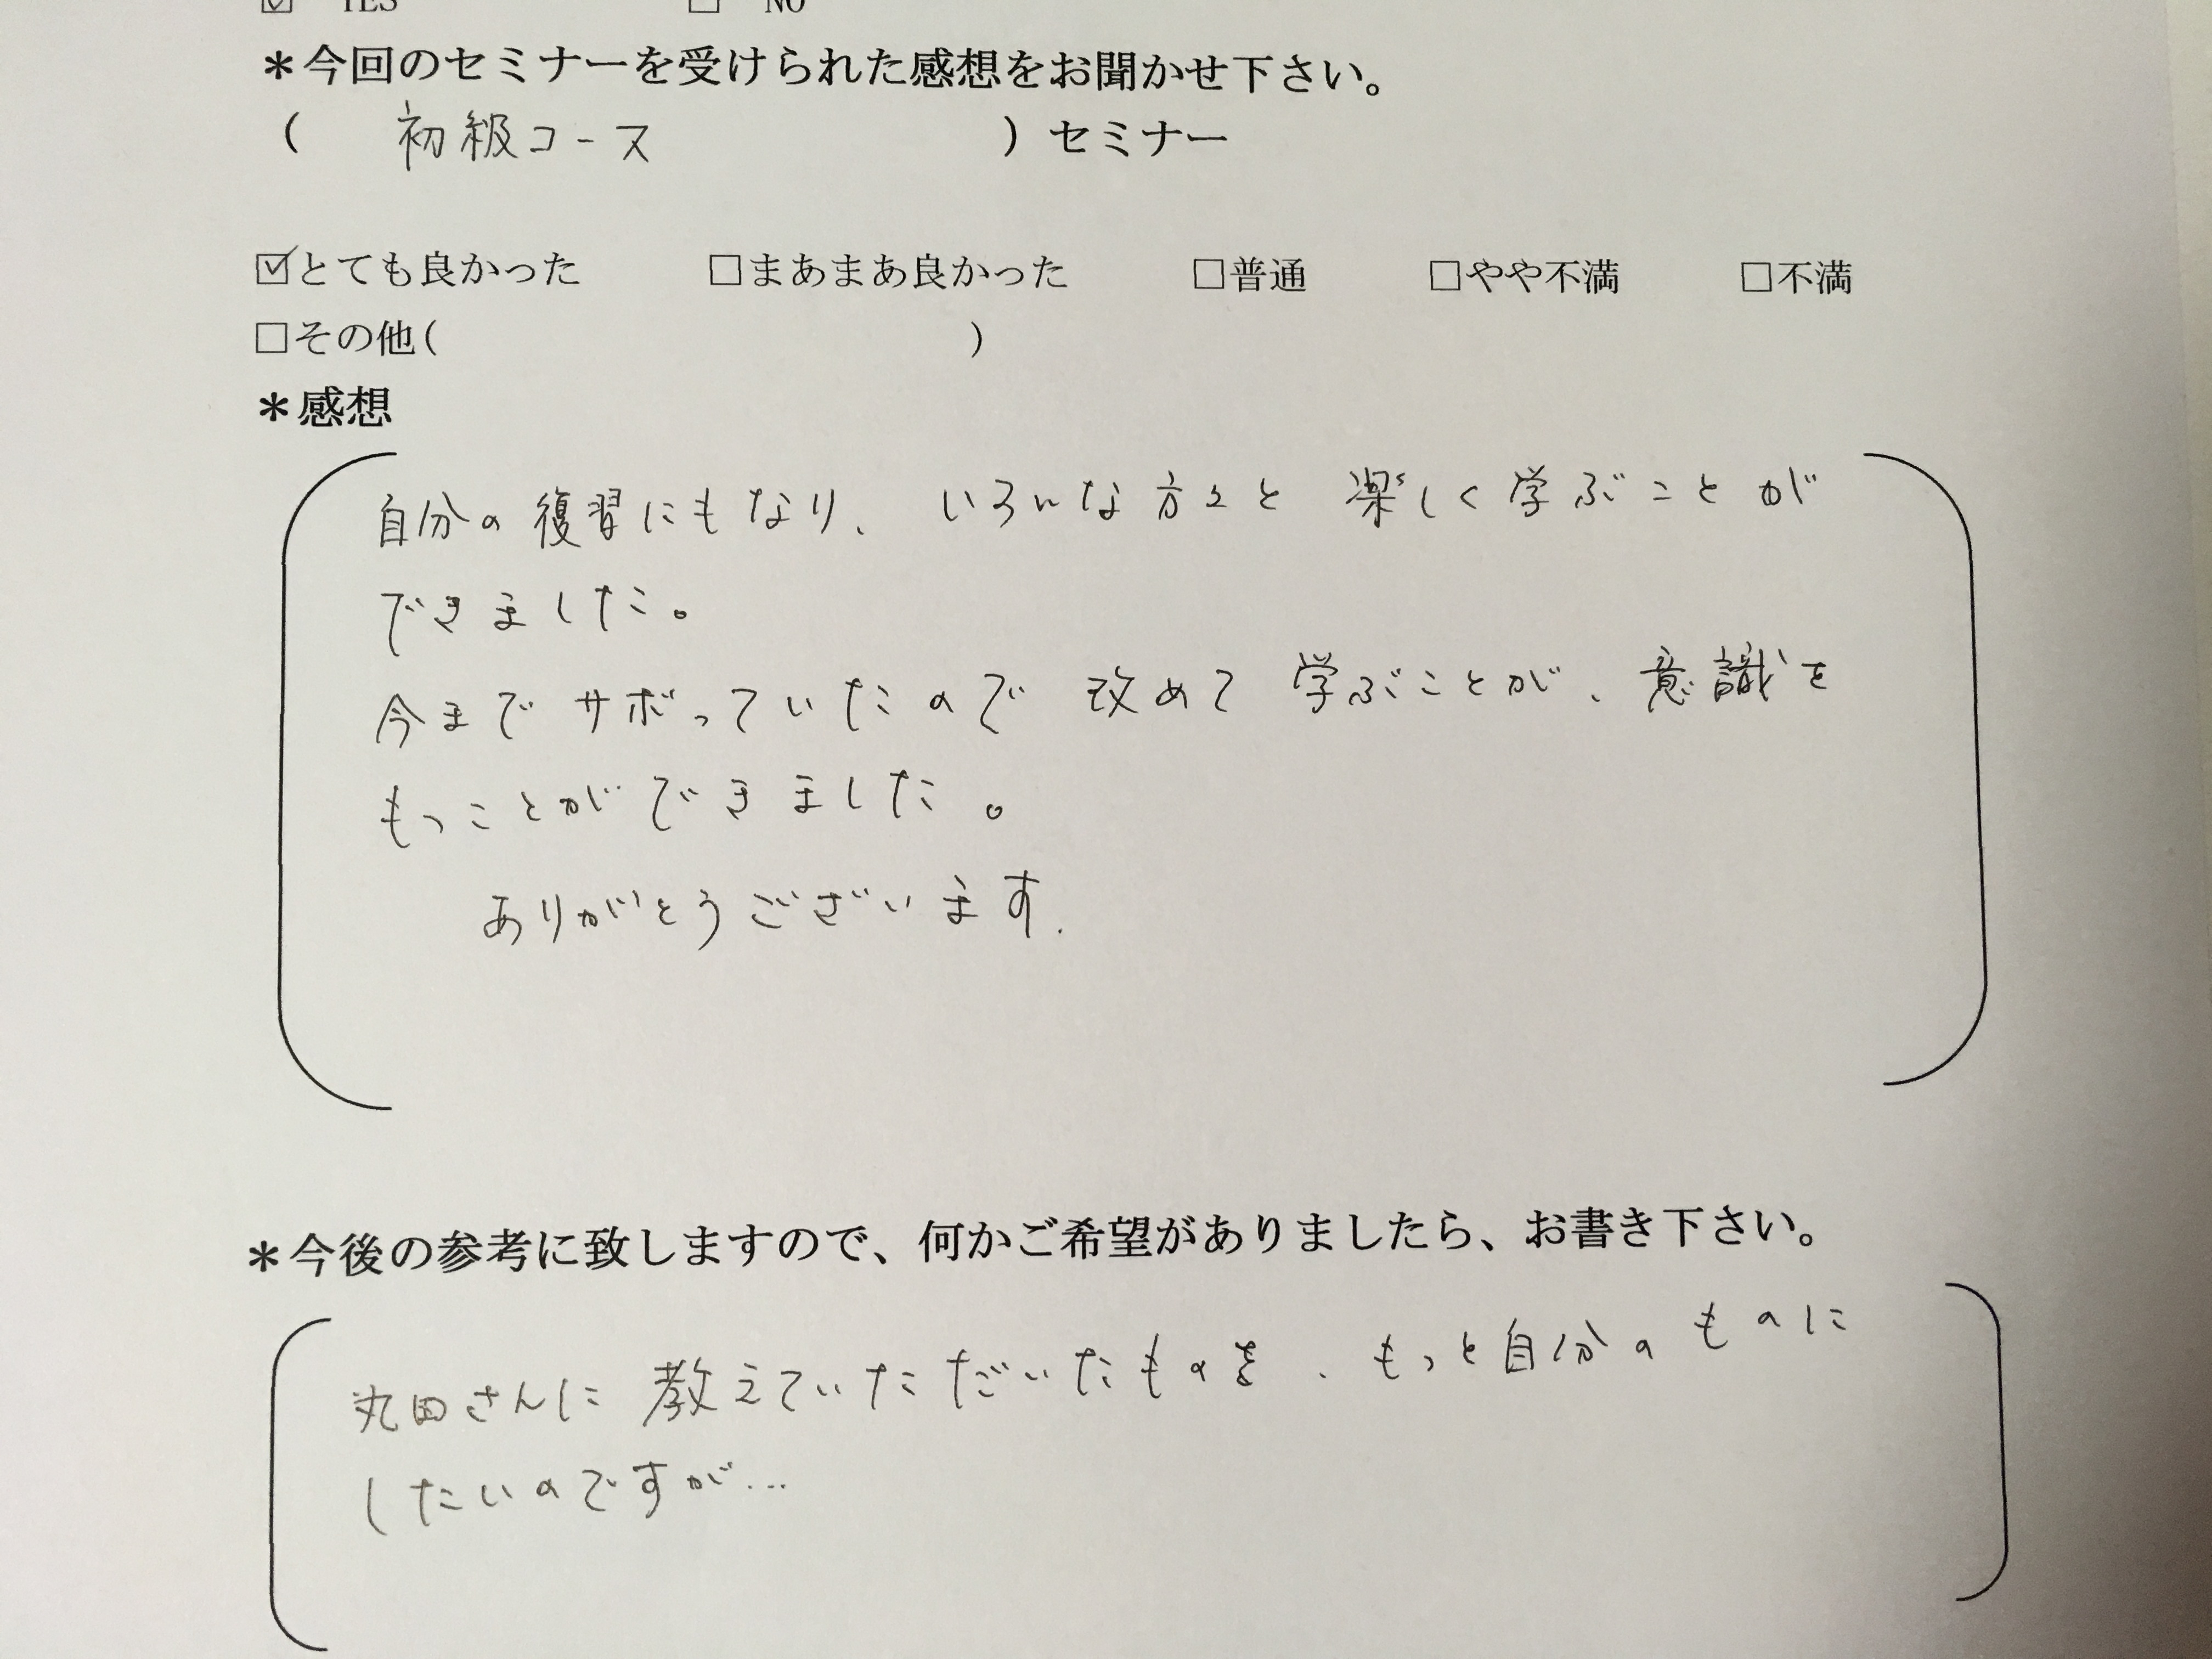 ☑ YES □ NO
＊今回のセミナーを受けられた感想をお聞かせ下さい。
( 初級コース ) セミナー
☑とても良かった □まあまあ良かった □普通 □やや不満 □不満
□その他( )
＊感想
自分の復習にもなり、いろんな方々と 楽しく学ぶことが
できました。
今まで サボっていたので 改めて 学ぶことが、意識を
もつことができました。
ありがとうございます.
＊今後の参考に致しますので、何かご希望がありましたら、お書き下さい。
丸田さんに 教えていただいたものを、もっと自分のものに
したいのですが…